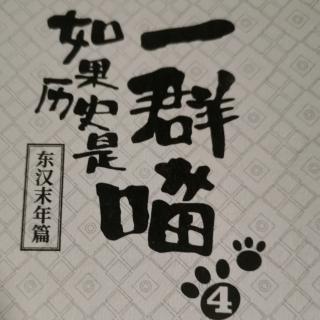 如果历史是
一群喵
东汉末年篇
4